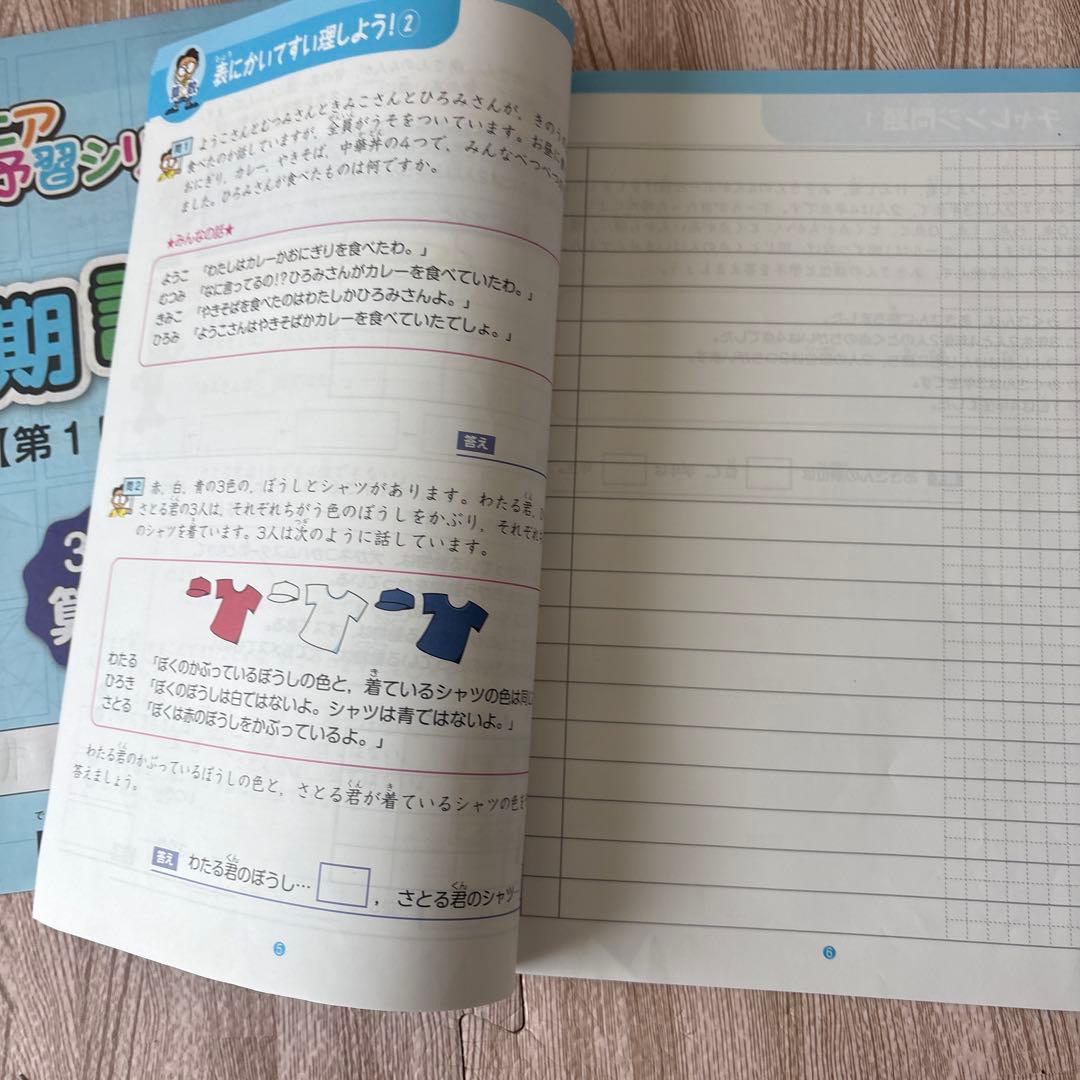 ニア
予習シリ
期
【第1
3
算
表にかいてすい理しよう!②
算数
問1 ようこさんとむつみさんときみこさんとひろみさんが、きのう
食べたのか話していますが、全員がうそをついています。お昼に
おにぎり、カレー、やきそば、中華丼の4つで、みんなべつべつ
ました。ひろみさんが食べたものは何ですか。
★みんなの話★
ようこ 「わたしはカレーかおにぎりを食べたわ。」
むつみ 「なに言ってるの!?ひろみさんがカレーを食べていたわ。」
きみこ 「やきそばを食べたのはわたしかひろみさんよ。」
ひろみ 「ようこさんはやきそばかカレーを食べていたでしょ。」
答え
問2 赤、白、青の3色の、ぼうしとシャツがあります。わたる君、
さとる君の3人は、それぞれちがう色のぼうしをかぶり、それぞれ
のシャツを着ています。3人は次のように話しています。
わたる 「ぼくのかぶっているぼうしの色と、着ているシャツの色は同
ひろき 「ぼくのぼうしは白ではないよ。シャツは青ではないよ。」
さとる 「ぼくは赤のぼうしをかぶっているよ。」
わたる君のかぶっているぼうしの色と、さとる君が着ているシャツの色を
答えましょう。
答え わたる君のぼうし… 、さとる君のシャツ
5
チャレンジ問題1
6